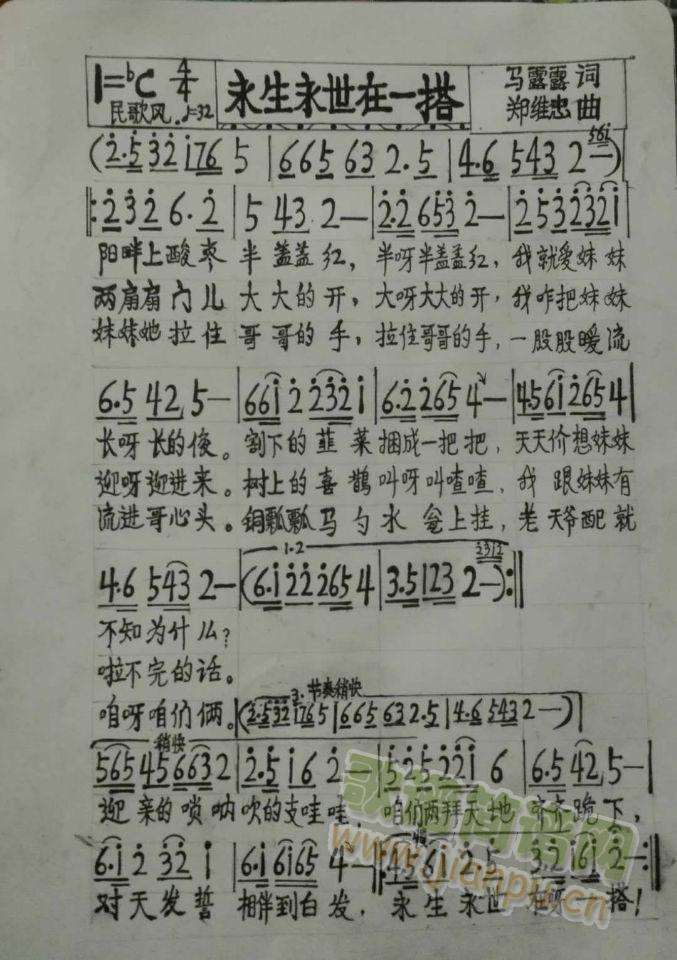 1=♭C 4/4 永生永世在一搭 马露露 词
民歌风 ♩=32 郑维忠 曲
(2̇·5̇ 3̇2̇ i76 5 | 665 63 2·5 | 4·6 543 2 — 56i)
‖: 2̇3̇2̇ 6·2̇ | 5 43 2— | 2̇·2̇ 65̇3̇ 2̇— | 2̇5̇3̇2̇3̇2̇i
阳畔上酸枣 半盖盖红，半呀半盖盖红，我就爱妹妹
两扇扇门儿 大大的开，大呀大大的开，我咋把妹妹
妹妹她拉住 哥哥的手，拉住哥哥的手，一股股暖流
6·5 42 5— | 66i 2̇ 2̇3̇2̇ i | 6·2̇ 2̇65 4— | 456i 2̇65 4 |
长呀长的俊。割下的韮菜捆成一把把，天天价想妹妹
迎呀迎进来。树上的喜鹊叫呀叫喳喳，我跟妹妹有
流进哥心头。铜瓢瓢马勺水瓮上挂，老天爷配就
1·2 2312
4·6 543 2— | (6·i 2̇2̇ 2̇65 4 | 3·5 123 2 —) :‖
不知为什么？
啦不完的话。
3. 节奏稍快
咱呀咱们俩。(2̇·5̇3̇2̇ i765 | 665 63 2·5 | 4·6 543 2— )|
稍快
565 45 663 2 | 2̇·5̇ i6 2̇— | 5̇2̇5̇2̇2̇i 6 | 6·5 42 5— |
迎亲的唢呐吹的支哇哇，咱们两拜天地 齐齐跪下，
6·i 2̇ 3̇2̇ i | 6·i 6i65 4— ‖: 45 6i 2̇·5̇ 3̇2̇i6i 2̇— :‖
对天发誓 相伴到白发，永生永世在呀一搭！
歌谱简谱网
www.jianpu.cn